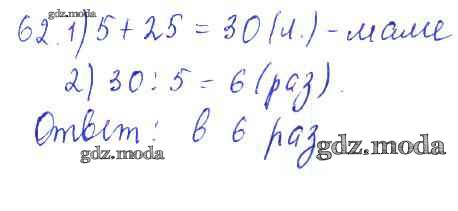 62. 1) 5 + 25 = 30 (л.) - маме
gdz.moda
2) 30 : 5 = 6 (раз).
Ответ: в 6 раз
gdz.moda gdz.moda